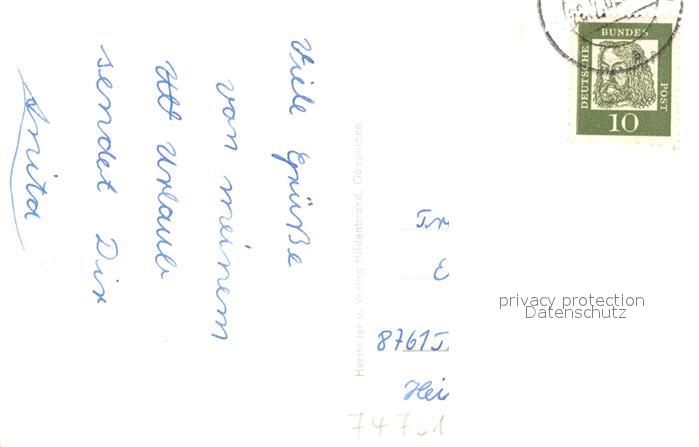 Viele Grüße
von meinem
Urlaub
sendet Dir
Anita
Hersteller u. Verlag Hildenbrand, Göppingen
DEUTSCHE BUNDESPOST
10
Fr
E
8761
Hei
privacy protection
Datenschutz